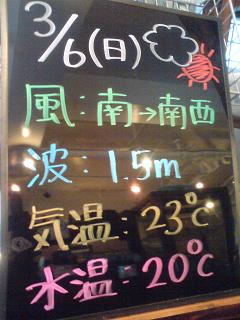 3/6(日)
風:南→南西
波:1.5m
気温:23℃
水温:20℃